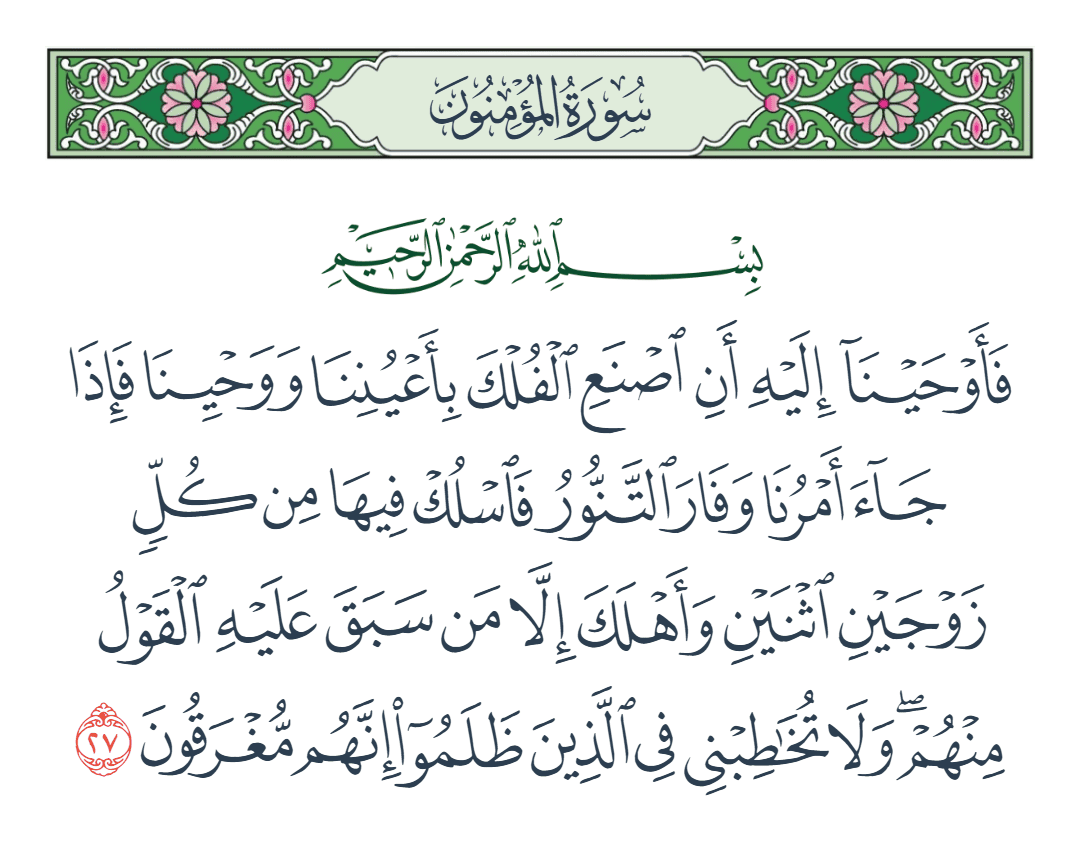 سُورَةُ المُؤْمِنُونَ
بِسْمِ ٱللَّهِ ٱلرَّحْمَٰنِ ٱلرَّحِيمِ
فَأَوْحَيْنَآ إِلَيْهِ أَنِ ٱصْنَعِ ٱلْفُلْكَ بِأَعْيُنِنَا وَوَحْيِنَا فَإِذَا
جَآءَ أَمْرُنَا وَفَارَ ٱلتَّنُّورُ فَٱسْلُكْ فِيهَا مِن كُلٍّ
زَوْجَيْنِ ٱثْنَيْنِ وَأَهْلَكَ إِلَّا مَن سَبَقَ عَلَيْهِ ٱلْقَوْلُ
مِنْهُمْ ۖ وَلَا تُخَٰطِبْنِى فِى ٱلَّذِينَ ظَلَمُوٓا۟ إِنَّهُم مُّغْرَقُونَ ٢٧